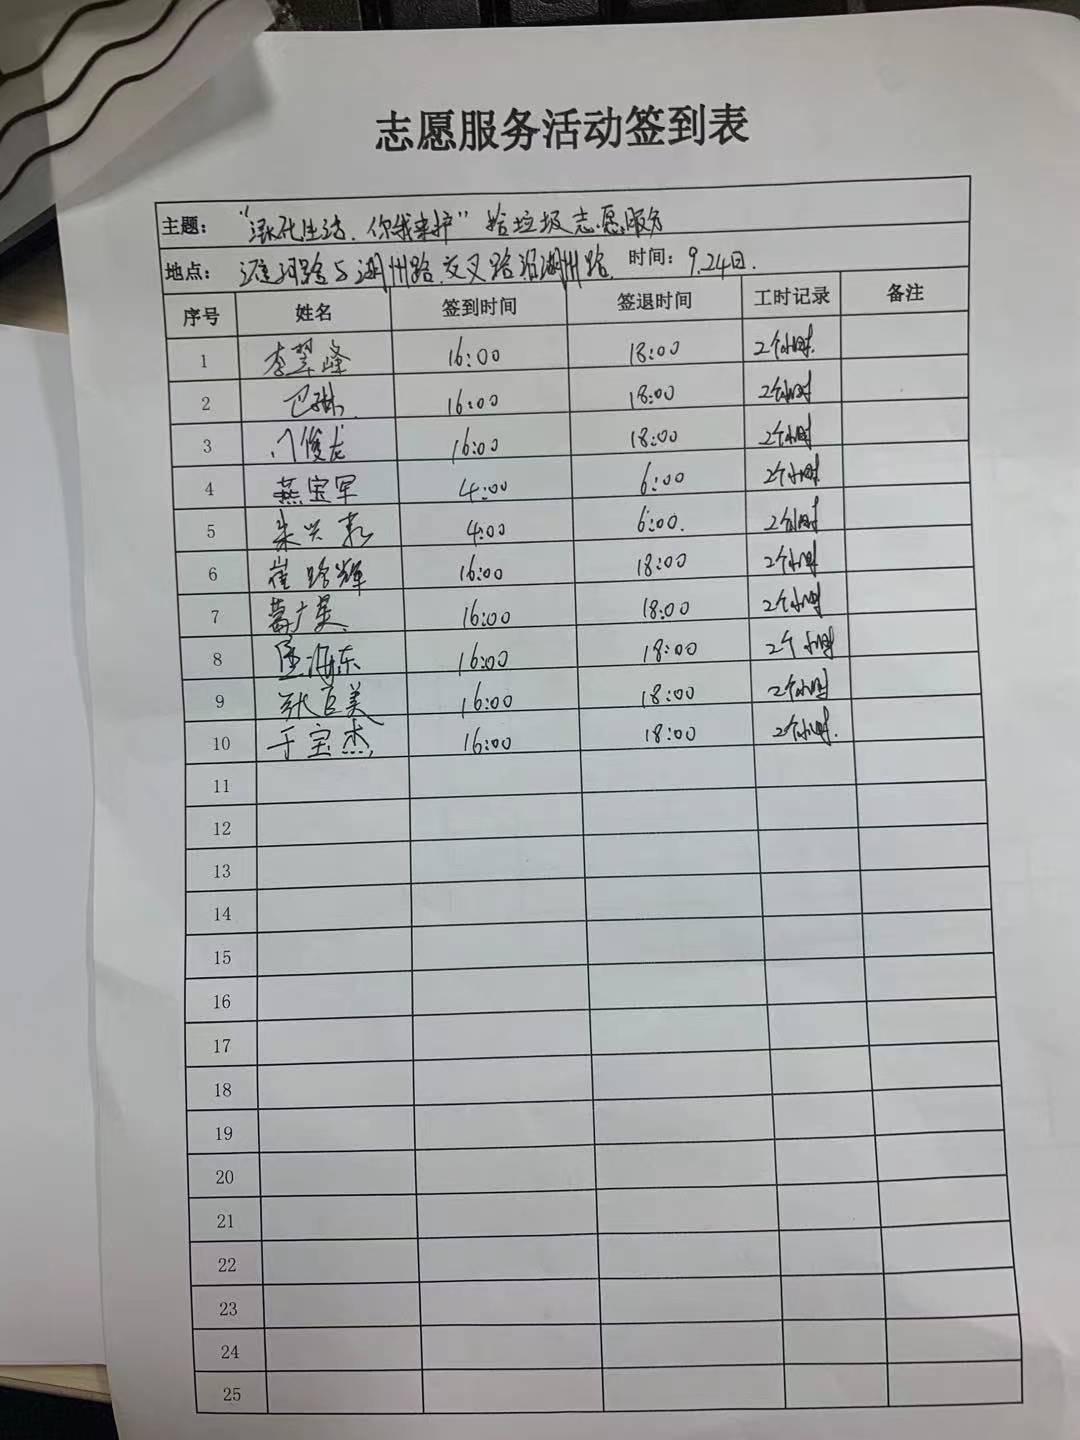 志愿服务活动签到表
主题： "绿化生活、你我来护" 捡垃圾志愿服务
地点： 路与湖州路交叉路沿湖州路. 时间： 9.24日.
序号 姓名 签到时间 签退时间 工时记录 备注
1 李翠峰 16:00 18:00 2个小时.
2 巴琳 16:00 18:00 2个小时
3 俊龙 16:00 18:00 2个小时
4 燕宝军 4:00 6:00 2个小时
5 朱兴 4:00 6:00. 2个小时
6 崔路辉 16:00 18:00 2个小时
7 葛广昊 16:00 18:00 2个小时
8 海东 16:00 18:00 2个小时
9 张巨美 16:00 18:00 2个小时
10 于宝杰 16:00 18:00 2个小时.
11
12
13
14
15
16
17
18
19
20
21
22
23
24
25